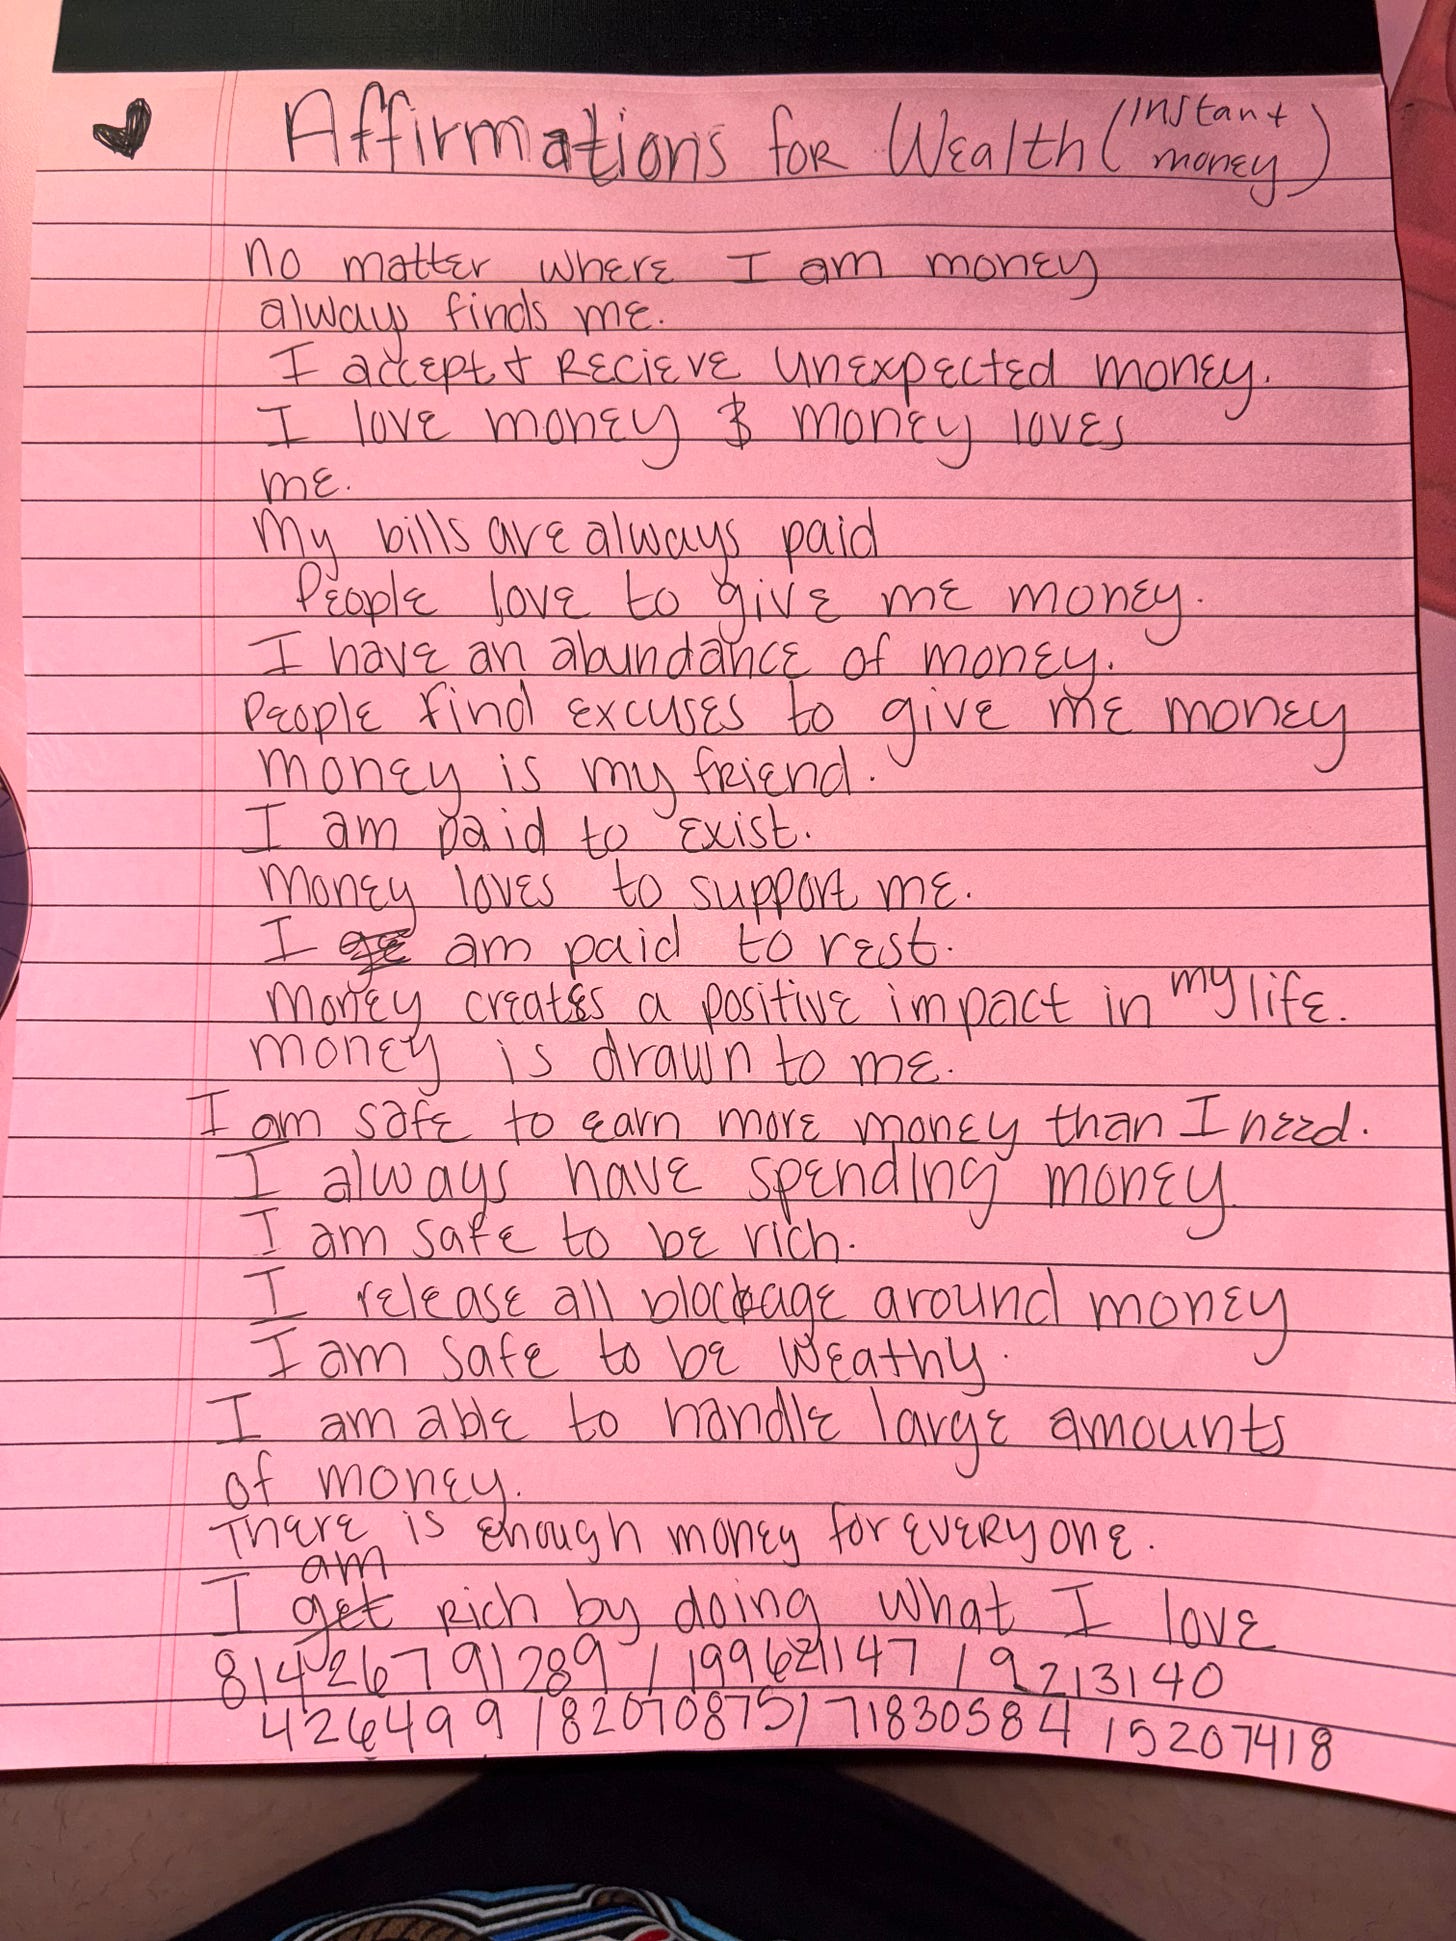 Affirmations for Wealth (instant money)
no matter where I am money
always finds me.
I accept + Recieve unexpected money.
I love money $ money loves
me.
My bills are always paid
People love to give me money.
I have an abundance of money.
People find excuses to give me money
money is my friend.
I am paid to exist.
Money loves to support me.
I am paid to rest.
Money creates a positive impact in my life.
money is drawn to me.
I am safe to earn more money than I need.
I always have spending money
I am safe to be rich.
I release all blockage around money
I am safe to be weathy.
I am able to handle large amounts
of money.
There is enough money for everyone.
I am rich by doing what I love
814 267 91289 / 199621147 / 9213140
426499 / 82070875 / 71830584 / 5207418